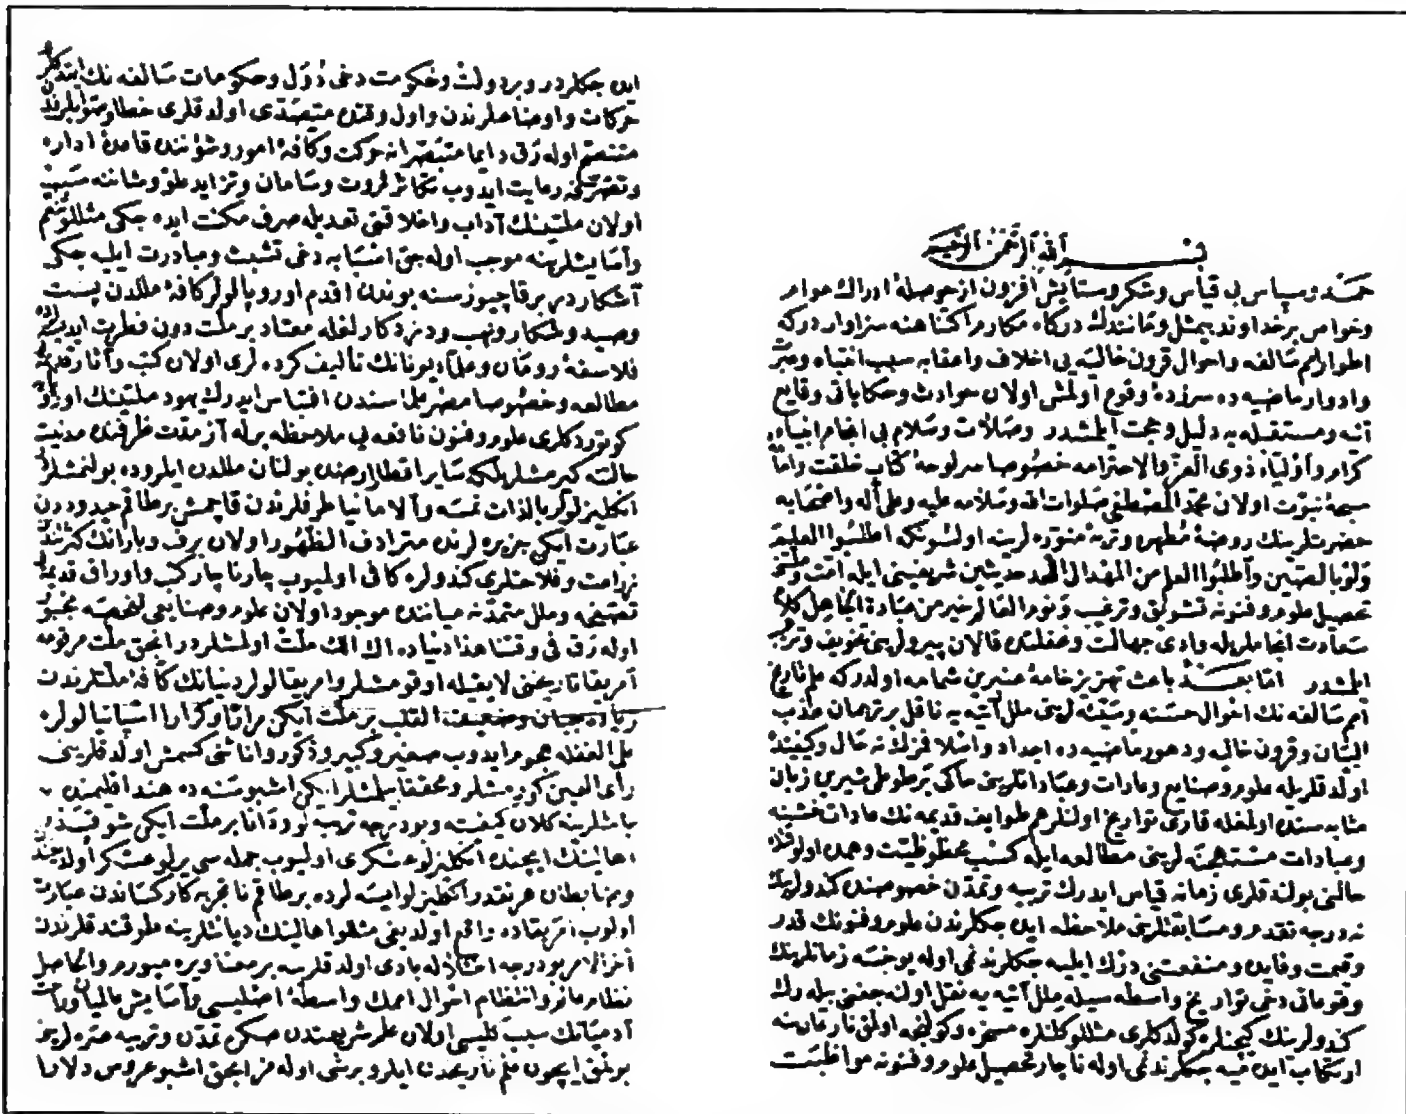 بسم الله الرحمن الرحيم
حمد و سپاس بی قیاس و شکر و ستایش افزون از حوصلهٔ ادراك عوام
و خواص بر خداوند بیمثل و مانندك درکاه مکارم اکتناهنه سزاوار درکه
اطوار امم سالفه و احوال قرون خالیه یی اخلاف و اعقابه سبب انتباه و عبر
و ادوار ماضیه ده سرزدهٔ وقوع اولمش اولان حوادث و حکایاتی وقایع
آتیه و مستقبله یه دلیل و حجت ایلمشدر و صلات و سلام بی انجام انبیاء
کرام و اولیاء ذوی العز و الاحترامه خصوصا سرلوحهٔ کتاب خلقت و امام
سبحهٔ نبوت اولان محمد المصطفی صلوات الله و سلامه علیه و علی آله و اصحابه
حضرتلرینك روضهٔ مطهره و تربهٔ منوره لرینه اولسونکه اطلبوا العلم
ولو بالصین و اطلبوا العلم من المهد الی اللحد حدیثین شریفینی ایله امت و ملتنی
تحصیل علوم و فنونه تشویق و ترغیب و نوم العالم خیر من عبادة الجاهل کلام
سعادت انجاملریله وادی جهالت و غفلتده قالان پیرولرینی تخویف و ترهیب
ایلمشدر اما بعد باعث تهزیز خامهٔ عنبرین شمامه اولدرکه علم تاریخ
امم سالفه نك احوال حسنه و سیئه لرینی ملل آتیه یه ناقل بر ترجمان عذب
البیان و قرون خالیه و دهور ماضیه ده اجداد و اسلافزك نه حال و کیفیتده
اولدقلریله علوم و صنایع و عادات و عباداتلرینی حاکی بر طوطی شیرین زبان
مثابه سنده اولمغله قارئ تواریخ اولنلر هر طوایف قدیمه نك عادات خشینه
و عبادات مستهجنه لرینی مطالعه ایله کسب محظوظیت و همده اولوقتك
حالنی بولندقلری زمانه قیاس ایدرك تربیه و تمدن خصوصنده کندولرینك
نه درجه تقدم و مسابقتلرینی ملاحظه ایده جکلرندن علوم و فنونك قدر
و قیمت و فایده و منفعتنی درك ایلیه جکلرندن غیری اوله یوخسه زمانلرینك
وقوعاتی دخی تواریخ واسطه سیله ملل آتیه یه نقل اولنه جغنی بیله رك
کندولرینك کیجنلره کولدکلری مثللو کلنلره مسخره و کولنج اولمق
ارتکاب ایده میه جکلرندن اوله ناچار تحصیل علوم و فنونه مواظبت
ایده جکلردر و بر دولت و حکومت دخی دول و حکومات سالفه نك ایتدکلری
حرکات و اوضاعلرندن و اول وقتده متصدی اولدقلری خطا و صوابلرندن
متنصح اوله رق دایما متبصرانه حرکت و کافهٔ امور و شؤننده قاعدهٔ اداره
و تصرفه رعایت ایدوب تکاثر ثروت و سامان و تزاید علو و شاننه سبب
اولان ملتینك آداب و اخلاقنی تعدیله صرف مکنت ایده جکی مثللو تنعم
و آسایشلرینه موجب اوله جق اسبابه دخی تشبث و مبادرت ایلیه جکی
آشکاردر بر قاچیوز سنه بوندن اقدم اوروپالولر کافهٔ مللدن پست
و صید و شکار و نهب و دزدکارلغله معتاد بر ملت دون فطرت ایدیلر
فلاسفهٔ رومان و علماء یونانك تألیف کرده لری اولان کتب و آثار
مطالعه و خصوصا مصر علماسندن اقتباس ایدرك یهود ملتینك
کوتوردکلری علوم و فنون نافعه یی ملاحظه برله آز مدت ظرفنده مدنیت
حالته کیرمشلر بلکه سایر اقطار ارضده بولنان مللدن ایلروده بولنمشلردر
انکلیزلولر بالذات نمسه و آلامانیا طرفلرندن قاچمش بر طاقم حیدوددن
عبارت ایکن جزیره لرنده مترادف الظهور اولان برف و بارانك کثرتندن
زراعت و فلاحتلری کندولره کافی اولمیوب چار ناچار کتب و اوراق قدیمه یی
تصفیحه و ملل متمدنه میاننده موجود اولان علوم و صنایعی تفحصه مجبور
اوله رق فی وقتنا هذا دنیاده اك الك ملت اولمشلردر انجق ملت مرقومه
آمریقا تاریخنی لایقیله اوقومشلر و امریقالولر دنیانك کافهٔ ملتلرندن
زیاده جبان و ضعیفة القلب بر ملت ایکن مرارا و کرارا اسپانیالولره
علی الغفله هجوم ایدوب صغیر و کبیر و ذکور و اناثنی کسمش اولدقلرینی
رأی العین کورمشلر و محققا بیلمشلر ایکن اشبو سنه ده هند اقلیمنده
باشلرینه کلان کیفیته و بو درجه تربیه لو و دانا بر ملت ایکن شو
اهالینك ایچنده انکلیزلو عسکری اولمیوب جمله سی یرلو عسکر اولدیغندن
و ضابطان هر نقدر انکلیزلو ایسه لرده بر طاقم ناتجربه کار کساندن عبارت
اولوب امریقاده واقع اولدیغی مثللو اهالینك دیانتلرینه طوقندقلرندن
آخر الامر بو درجه اختلاله بادی اولدقلرینه بر معنا ویره میورم و الحاصل
نظام عالم و انتظام احوال اممك واسطهٔ اصلیسی و آسایش بالیان و راحت
آدمیانك سبب کلیسی اولان علم شریعتدن صکره تمدن و تربیه عزه لریچون
بولنمق ایچون علم تاریخدن ایلرو برشی اوله مز انجق اشبو عروس دلارا